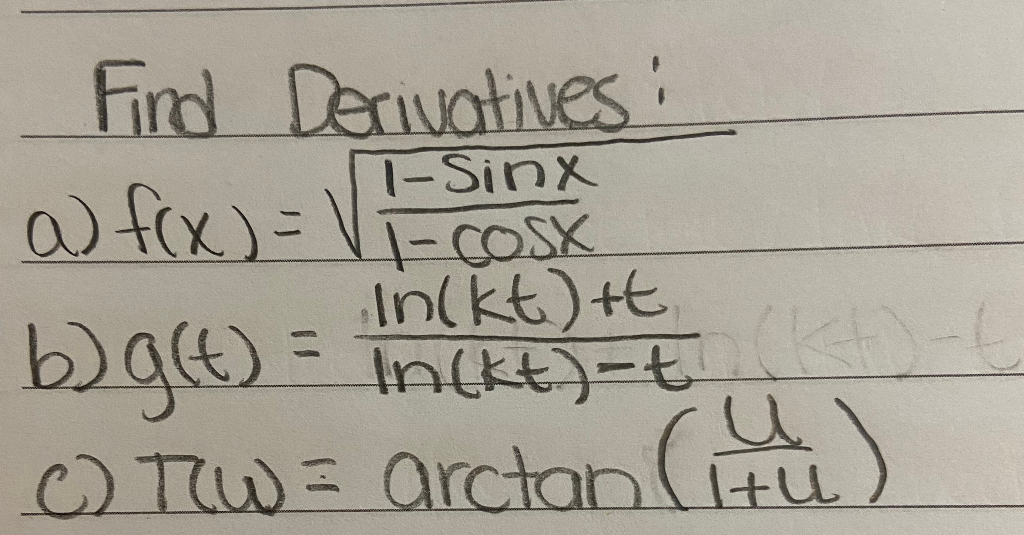 Find Derivatives:
a) f(x) = √((1-sinx)/(1-cosx))
b) g(t) = (ln(kt)+t)/(ln(kt)-t)
ln(kt)-t
c) T(u) = arctan(u/(1+u))